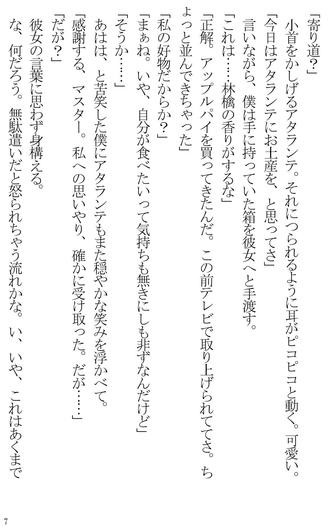 「寄り道？」
　小首をかしげるアタランテ。それにつられるように耳がピコピコと動く。可愛い。
「今日はアタランテにお土産を、と思ってさ」
　言いながら、僕は手に持っていた箱を彼女へと手渡す。
「これは……林檎の香りがするな」
「正解。アップルパイを買ってきたんだ。この前テレビで取り上げられててさ。ち
ょっと並んできちゃった」
「私の好物だからか？」
「まぁね。いや、自分が食べたいって気持ちも無きにしも非ずなんだけど」
「そうか……」
　あはは、と苦笑した僕にアタランテもまた穏やかな笑みを浮かべて。
「感謝する、マスター。私への思いやり、確かに受け取った。だが……」
「だが？」
　彼女の言葉に思わず身構える。
　な、何だろう。無駄遣いだと怒られちゃう流れかな。い、いや、これはあくまで
7